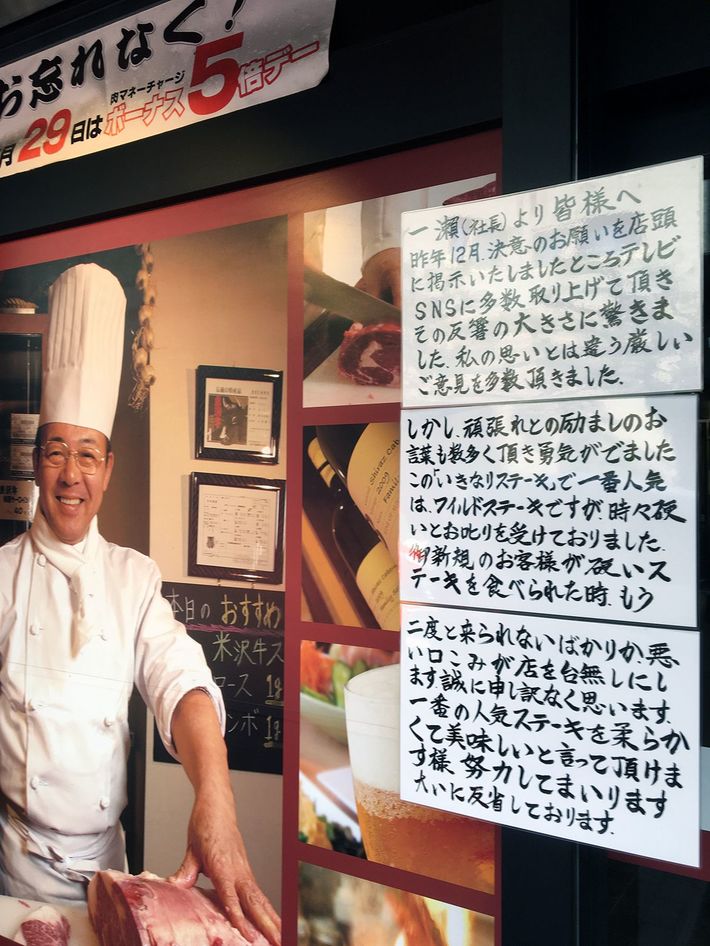 お忘れなく!
月29日は
肉マネーチャージ
ボーナス5倍デー
一瀬(社長)より皆様へ
昨年12月、決意のお願いを店頭
に掲示いたしましたところテレビ
SNSに多数取り上げて頂き
その反響の大きさに驚きま
した。私の思いとは違う厳しい
ご意見を多数頂きました。
しかし、頑張れとの励ましのお
言葉も数多く頂き勇気がでました
この「いきなりステーキ」で一番人気
は、ワイルドステーキですが時々硬
いとお叱りを受けておりました。
御新規のお客様が硬いス
テーキを食べられた時、もう
二度と来られないばかりか、悪
い口こみが店を台無しにし
ます。誠に申し訳なく思います。
一番の人気ステーキを柔らか
くて美味しいと言って頂けま
す様 努力してまいります
大いに反省しております。
本日の おすすめ
米沢牛ス
ロース 1g
ンボ 1g
Shiraz Cab
2009